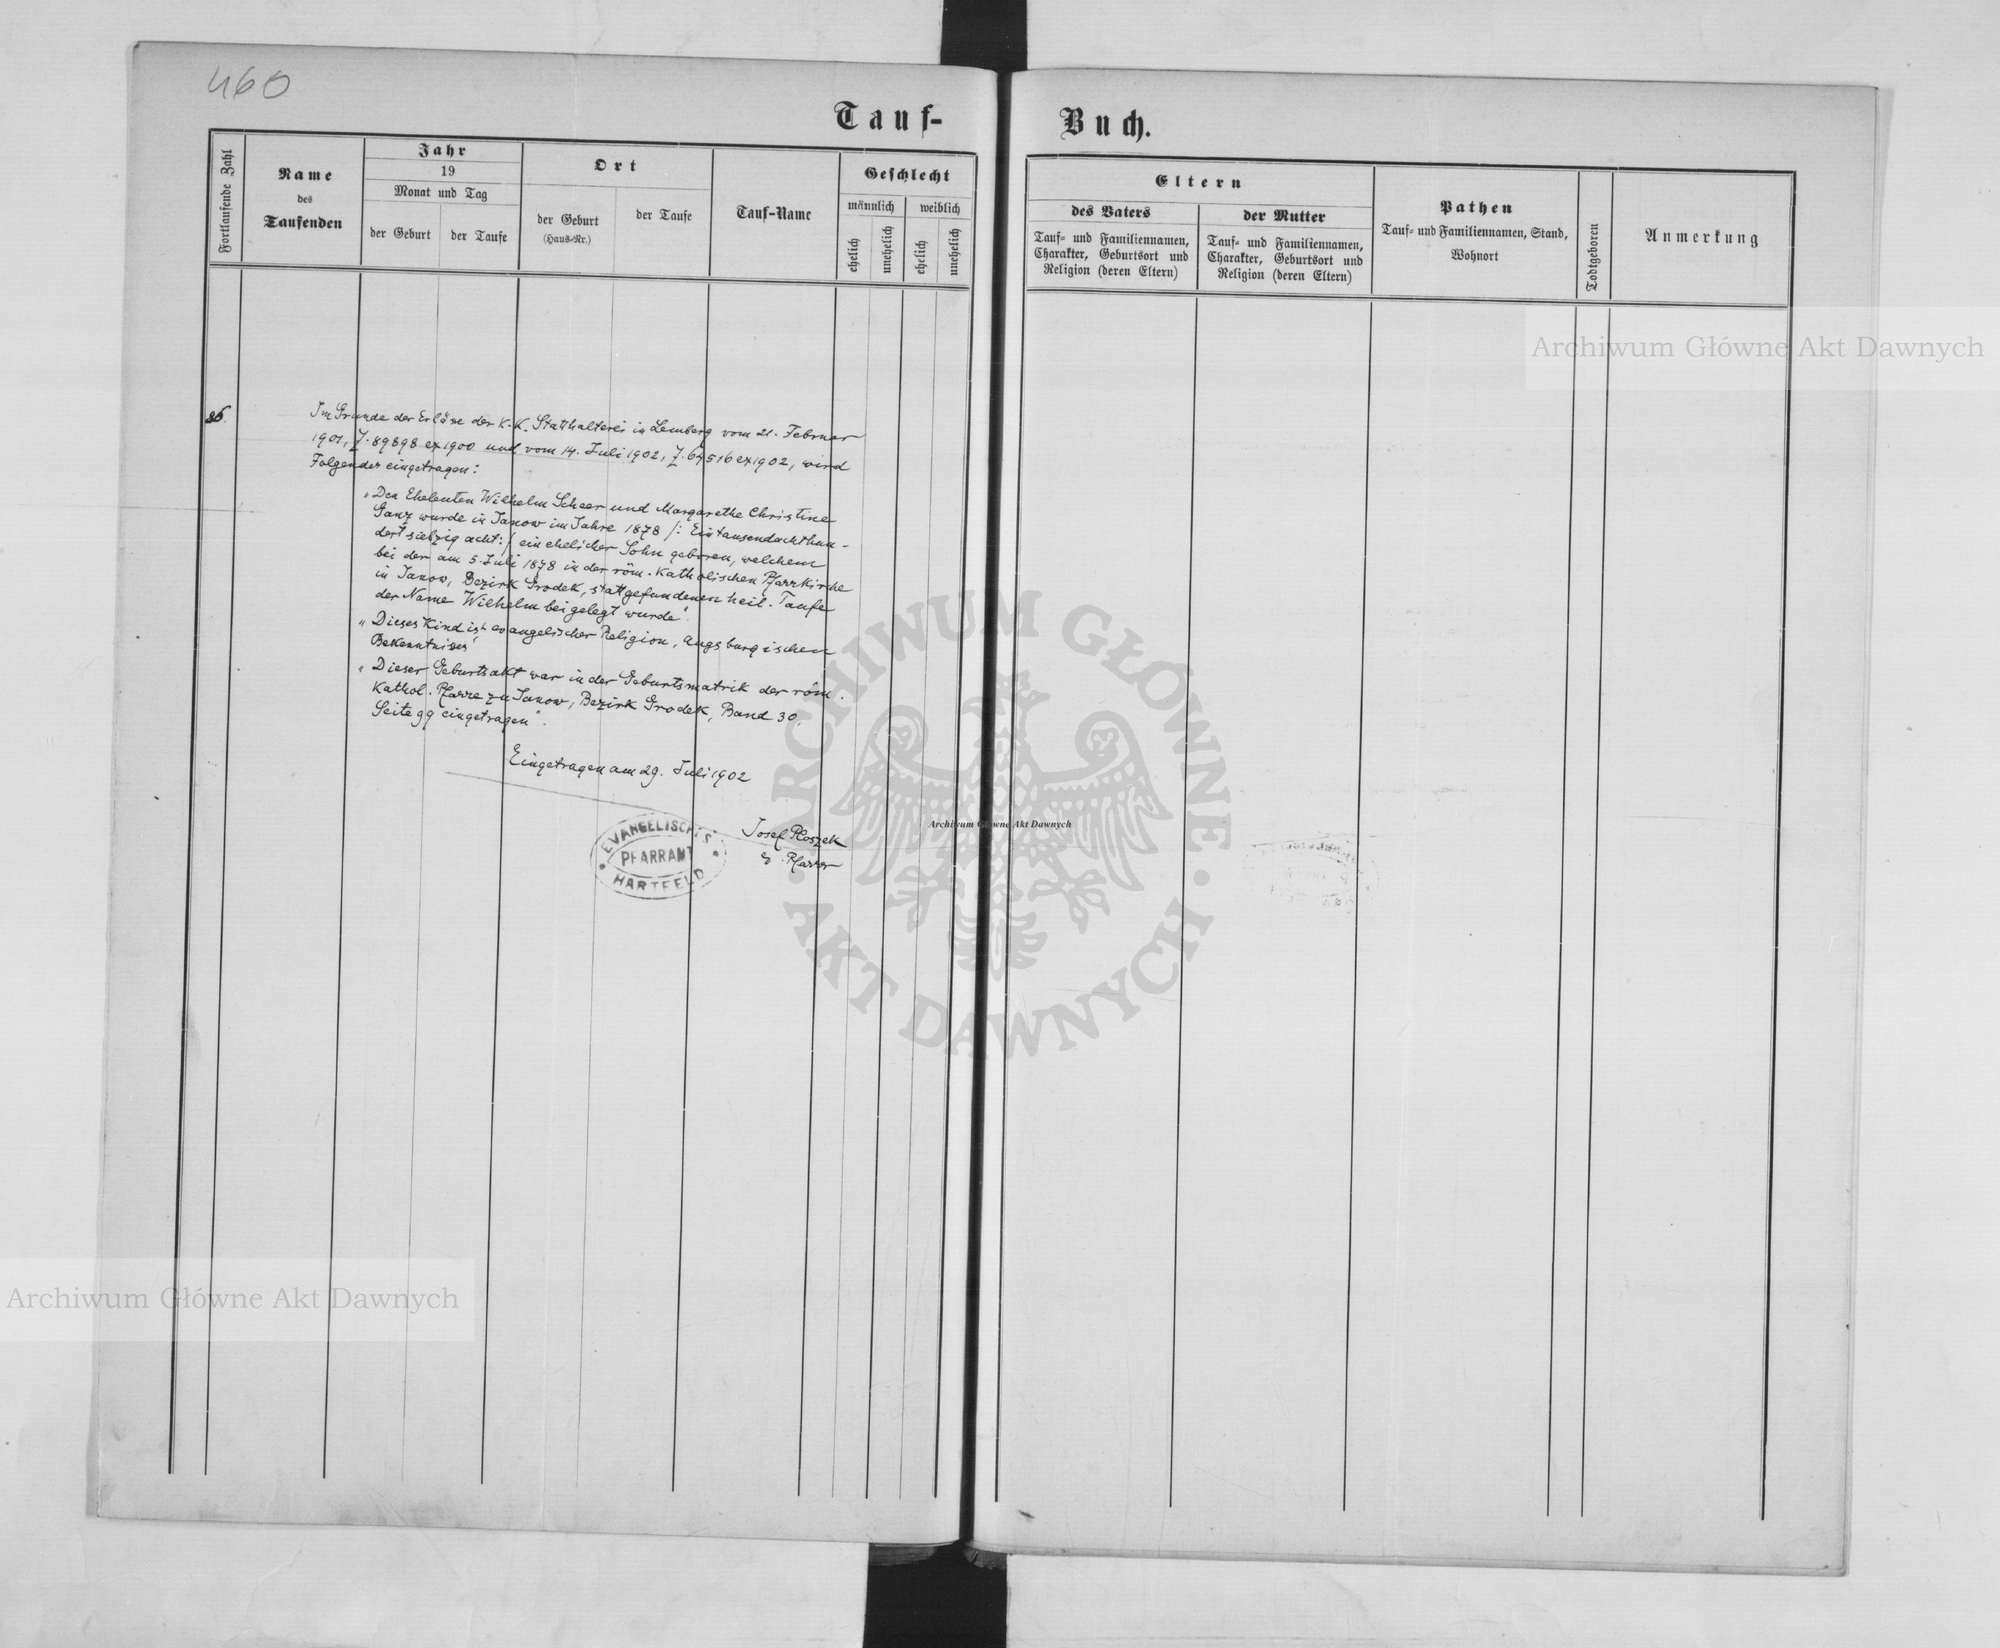 460
Tauf-
Buch.
Fortlaufende Zahl
Name
des
Taufenden
Jahr
19
Monat und Tag
der Geburt
der Taufe
Ort
der Geburt
(Haus-Nr.)
der Taufe
Tauf-Name
Geschlecht
männlich
weiblich
ehelich
unehelich
ehelich
unehelich
Eltern
des Vaters
Tauf- und Familiennamen,
Charakter, Geburtsort und
Religion (deren Eltern)
der Mutter
Tauf- und Familiennamen,
Charakter, Geburtsort und
Religion (deren Eltern)
Pathen
Tauf- und Familiennamen, Stand,
Wohnort
Todtgeboren
Anmerkung
86.
Im Grunde der Erläße der K.K. Statthalterei in Lemberg vom 21. Februar
1901, Z. 89898 ex 1900 und vom 14. Juli 1902, Z. 64516 ex 1902, wird
Folgendes eingetragen:
„Den Eheleuten Wilhelm Scheer und Margarethe Christine
Ganz wurde in Janow im Jahre 1878 /: Eintausendachthun-
dert siebzig acht :/ ein ehelicher Sohn geboren, welchem
bei der am 5. Juli 1878 in der röm. Katholischen Pfarrkirche
in Janow, Bezirk Grodek, stattgefundenen heil. Taufe
der Name Wilhelm beigelegt wurde“.
„Dieses Kind ist evangelischer Religion, Augsburgischen
Bekenntnises“
„Dieser Geburtsakt war in der Geburtsmatrik der röm.
Kathol. Pfarre zu Janow, Bezirk Grodek, Band 30,
Seite 99 eingetragen“.
Eingetragen am 29. Juli 1902
Josef Ploszek
ev. Pfarrer
EVANGELISCHES
PFARRAMT
HARTFELD
Archiwum Główne Akt Dawnych
ARCHIWUM GŁÓWNE
AKT DAWNYCH
Archiwum Główne Akt Dawnych
Archiwum Główne Akt Dawnych